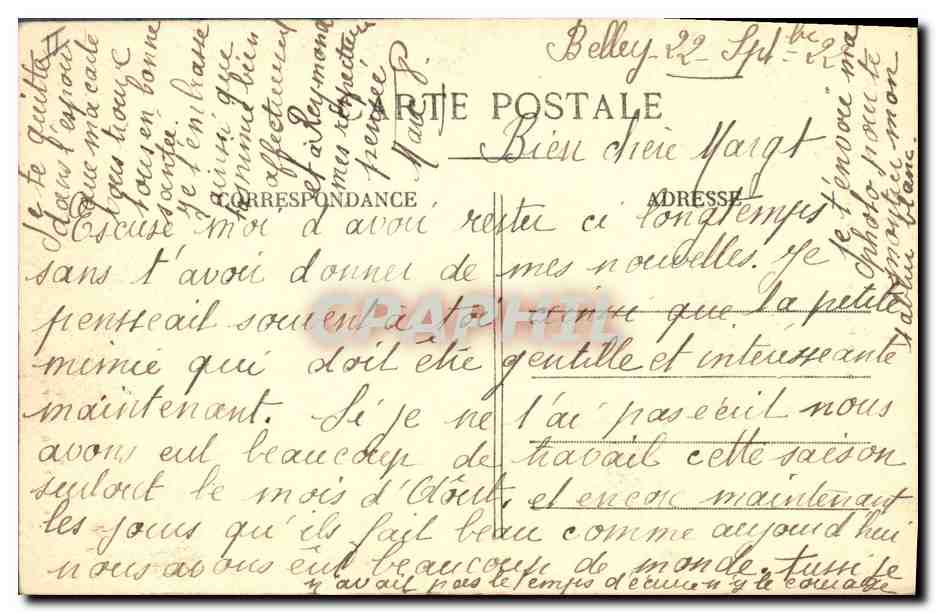 Belley 22 Sptbre 22
CARTE POSTALE
Bien chère Margt
CORRESPONDANCE
ADRESSE
Escuse moi d avoir rester ci longtemps
sans t'avoir donner de mes nouvelles. Je
pensseait souvent à toi ainsi que la petite
mimie qui doit être gentille et intéresseante
maintenant. Si je ne t'ai pas écrit nous
avons eut beaucoup de travail cette saison
surtout le mois d'Aôut, et encor maintenant
les jours qu'ils fait beau comme aujourd'hui
nous avons eut beaucoup de monde. Aussi je
n'avait pas le temps d'écrire n'y le courage
Je te quitte
dans l'espoir
que ma carte
vous trouve
tous en bonne
santée.
Je t'enbrasse
ainsi que
ta mimie bien
affectueus
et à Reymond
mes respectueu
pensée
Marg.
Je t'envoie ma
photo pour te
montrer mon
tablier blanc.
CPAPHIL